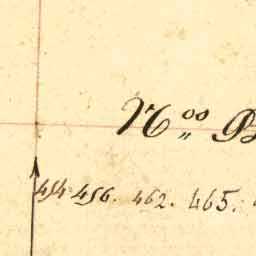 Noo B
454 456. 462. 465.